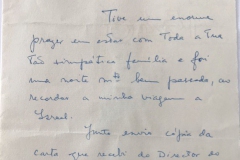 Tive um enorme
prazer em estar com toda a tua
tão simpática família e foi
uma noite mtº bem passada, ao
recordar a minha viagem a
Israel.
Junto envio cópia da
carta que recebi do Director do